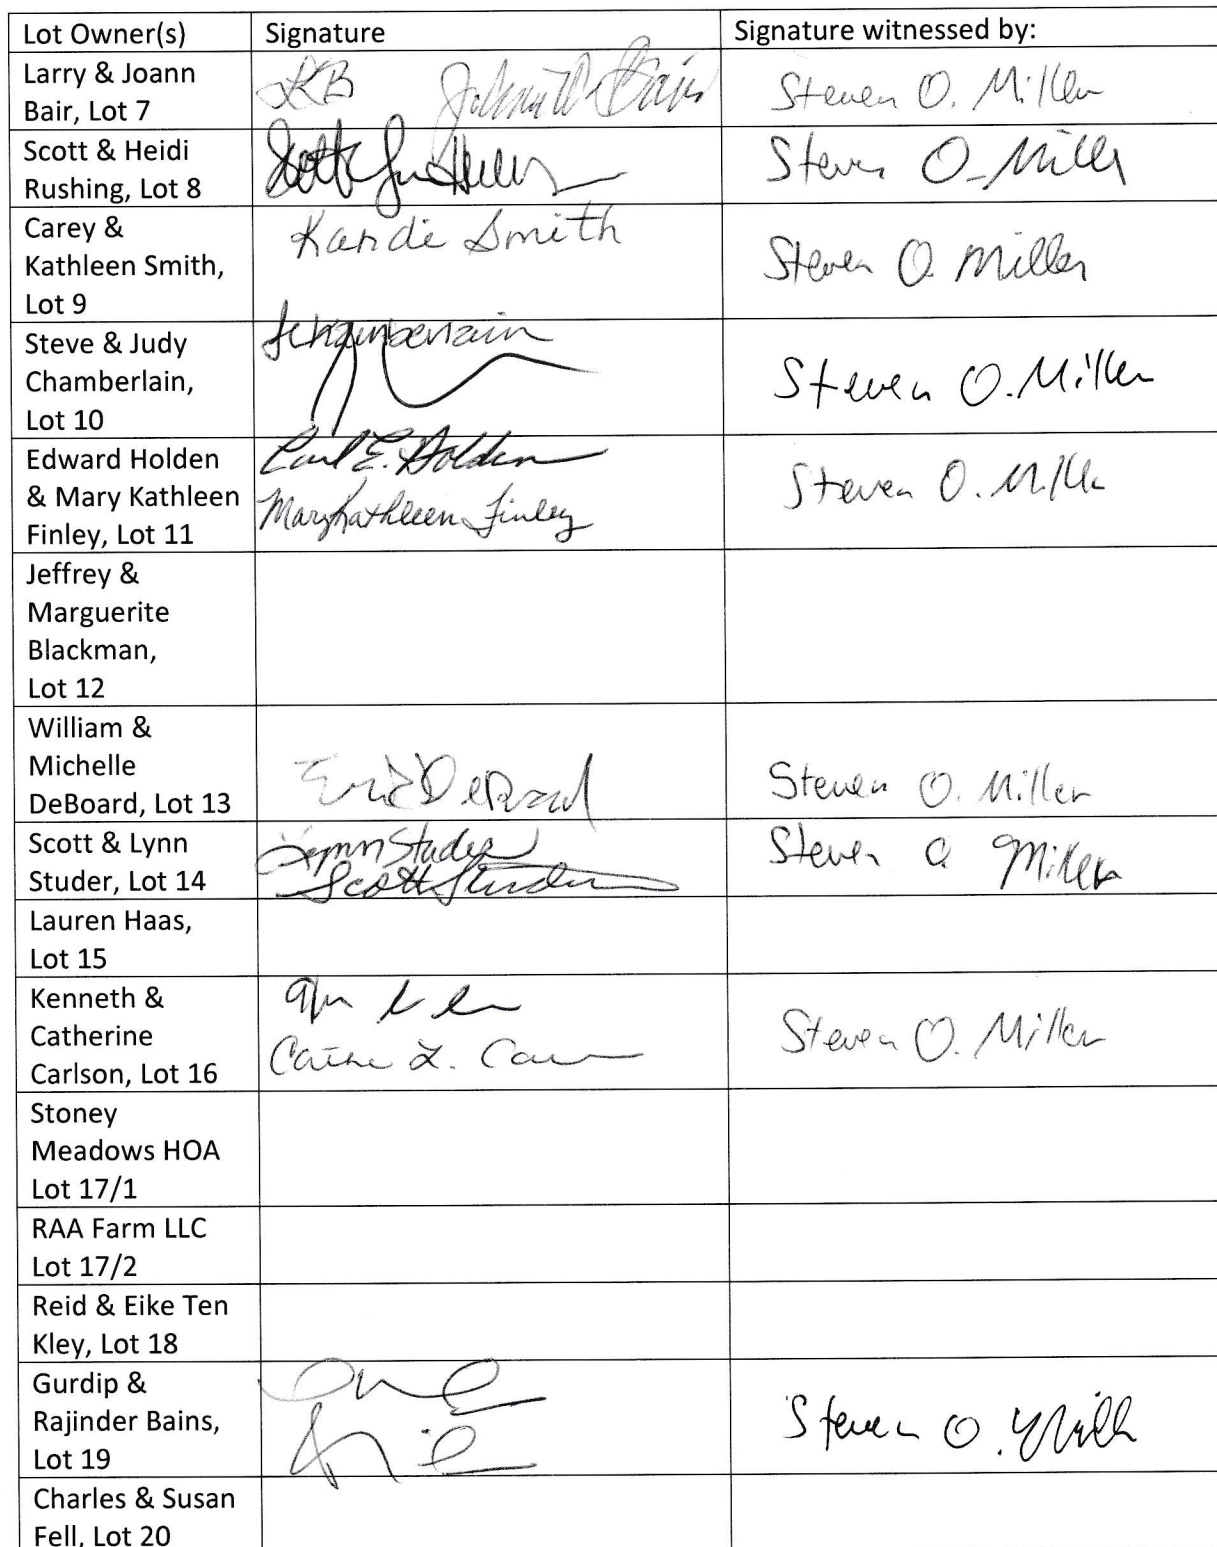 Lot Owner(s)
Signature
Signature witnessed by:
Larry & Joann
Bair, Lot 7
Steven O. Miller
Scott & Heidi
Rushing, Lot 8
Steven O. Miller
Carey &
Kathleen Smith,
Lot 9
Kandi Smith
Steven O. Miller
Steve & Judy
Chamberlain,
Lot 10
Steven O. Miller
Edward Holden
& Mary Kathleen
Finley, Lot 11
E. Holden
Mary Kathleen Finley
Steven O. Miller
Jeffrey &
Marguerite
Blackman,
Lot 12
William &
Michelle
DeBoard, Lot 13
Steven O. Miller
Scott & Lynn
Studer, Lot 14
Lynn Studer
Scott Studer
Steven O. Miller
Lauren Haas,
Lot 15
Kenneth &
Catherine
Carlson, Lot 16
Steven O. Miller
Stoney
Meadows HOA
Lot 17/1
RAA Farm LLC
Lot 17/2
Reid & Eike Ten
Kley, Lot 18
Gurdip &
Rajinder Bains,
Lot 19
Steven O. Miller
Charles & Susan
Fell, Lot 20